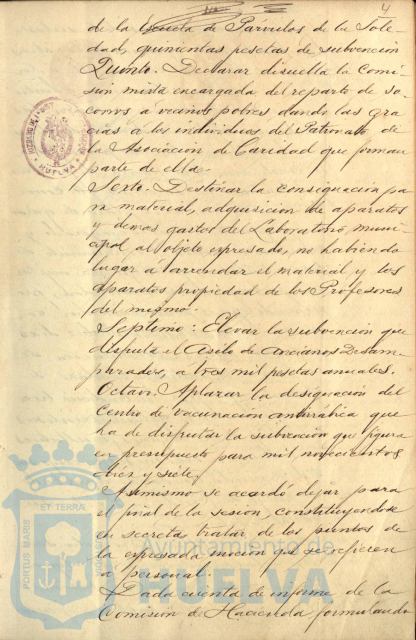 4
de la Escuela de Párvulos de la Sole-
dad, quinientas pesetas de subvención
Quinto. Declarar disuelta la Comi-
sión mixta encargada del reparto de so-
corros á vecinos pobres dando las gra-
cias á los individuos del Patronato de
la Asociacion de Caridad que forman
parte de ella.
Sexto. Destinar la consignación pa-
ra material, adquisicion de aparatos
y demas gastos del Laboratorio muni-
cipal al objeto expresado, no habiendo
lugar á arrendar el material y los
aparatos propiedad de los Profesores
del mismo.
Septimo: Elevar la subvención que
disfruta el Asilo de Ancianos Desam-
parados, a tres mil pesetas anuales.
Octavo. Aplazar la designación del
Centro de vacunación antirrábica que
ha de disfrutar la subvención que figura
en presupuesto para mil novecientos
diez y siete.
Asimismo se acordó dejar para
el final de la sesión, constituyendose
en secreta tratar de los puntos de
la expresada moción que se refieren
a personal.
Dada cuenta de informe de la
Comisión de Hacienda formulando
HUELVA
PORTUS MARIS ET TERRAE
Ayuntamiento de
HUELVA